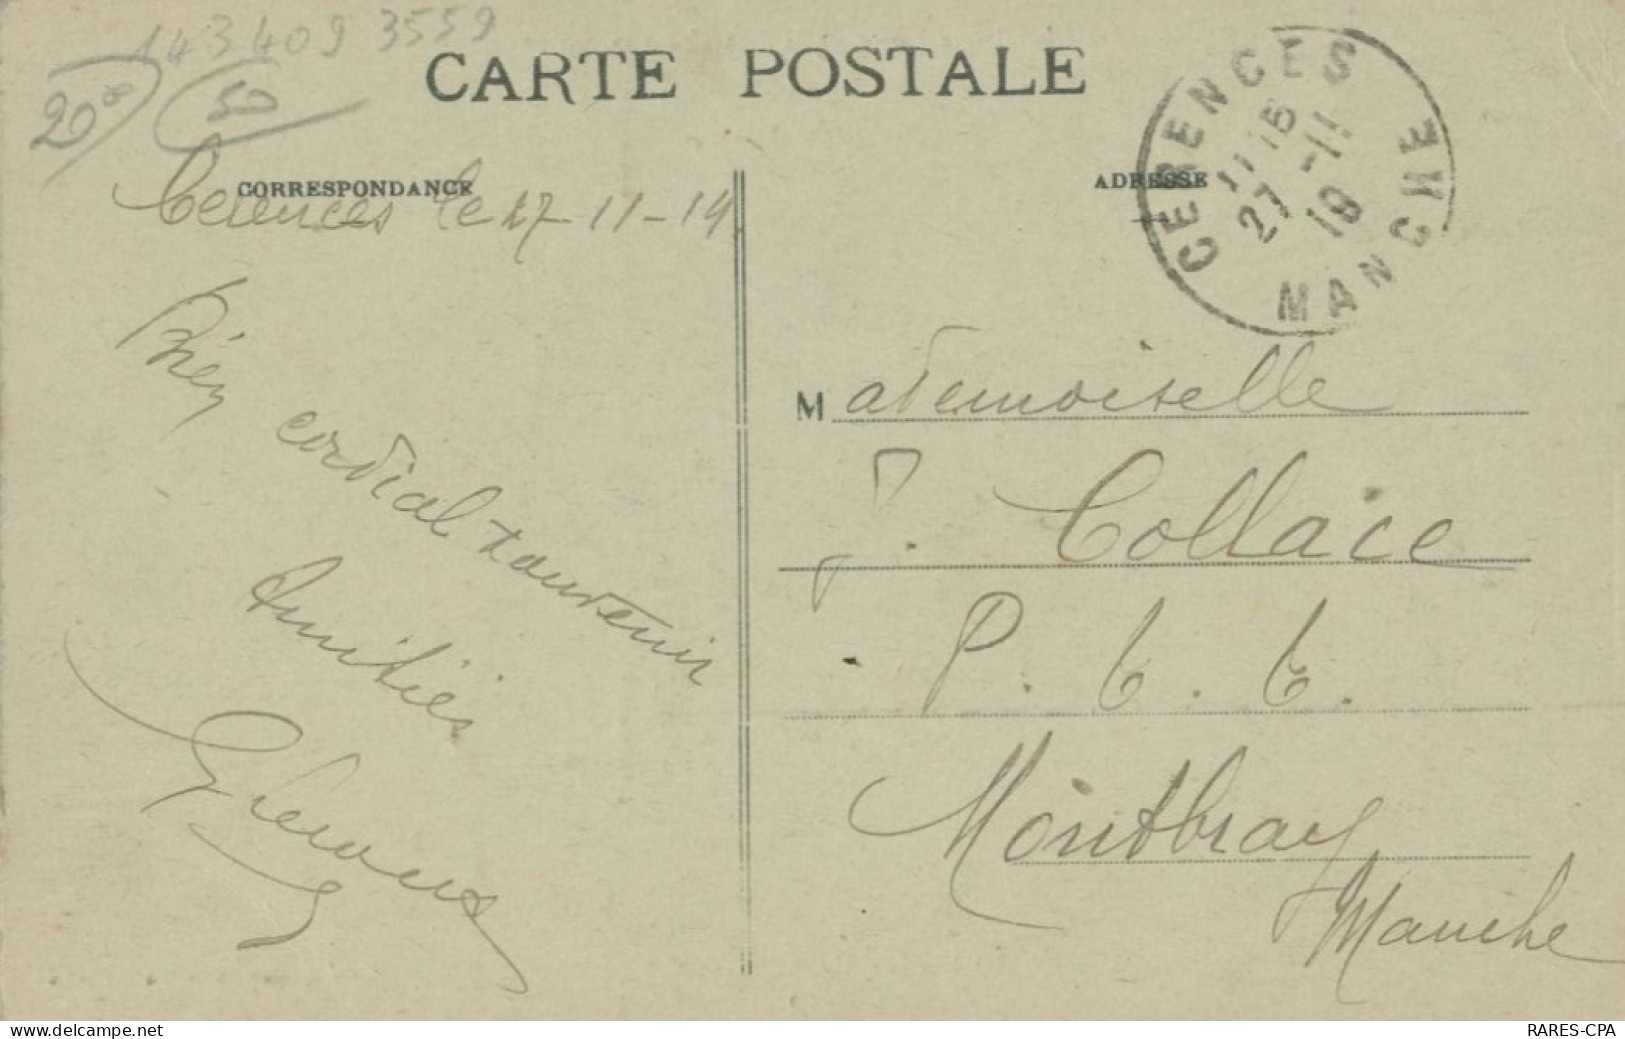 143409 3559
20
50
CARTE POSTALE
CORRESPONDANCE
ADRESSE
CERENCES
11 15
27 -11
19
MANCHE
Cerences le 27-11-19
Bien cordial souvenir
Amitiés
Mademoiselle
J. Collace
P. t. t.
Montbray
Manche
www.delcampe.net
RARES-CPA